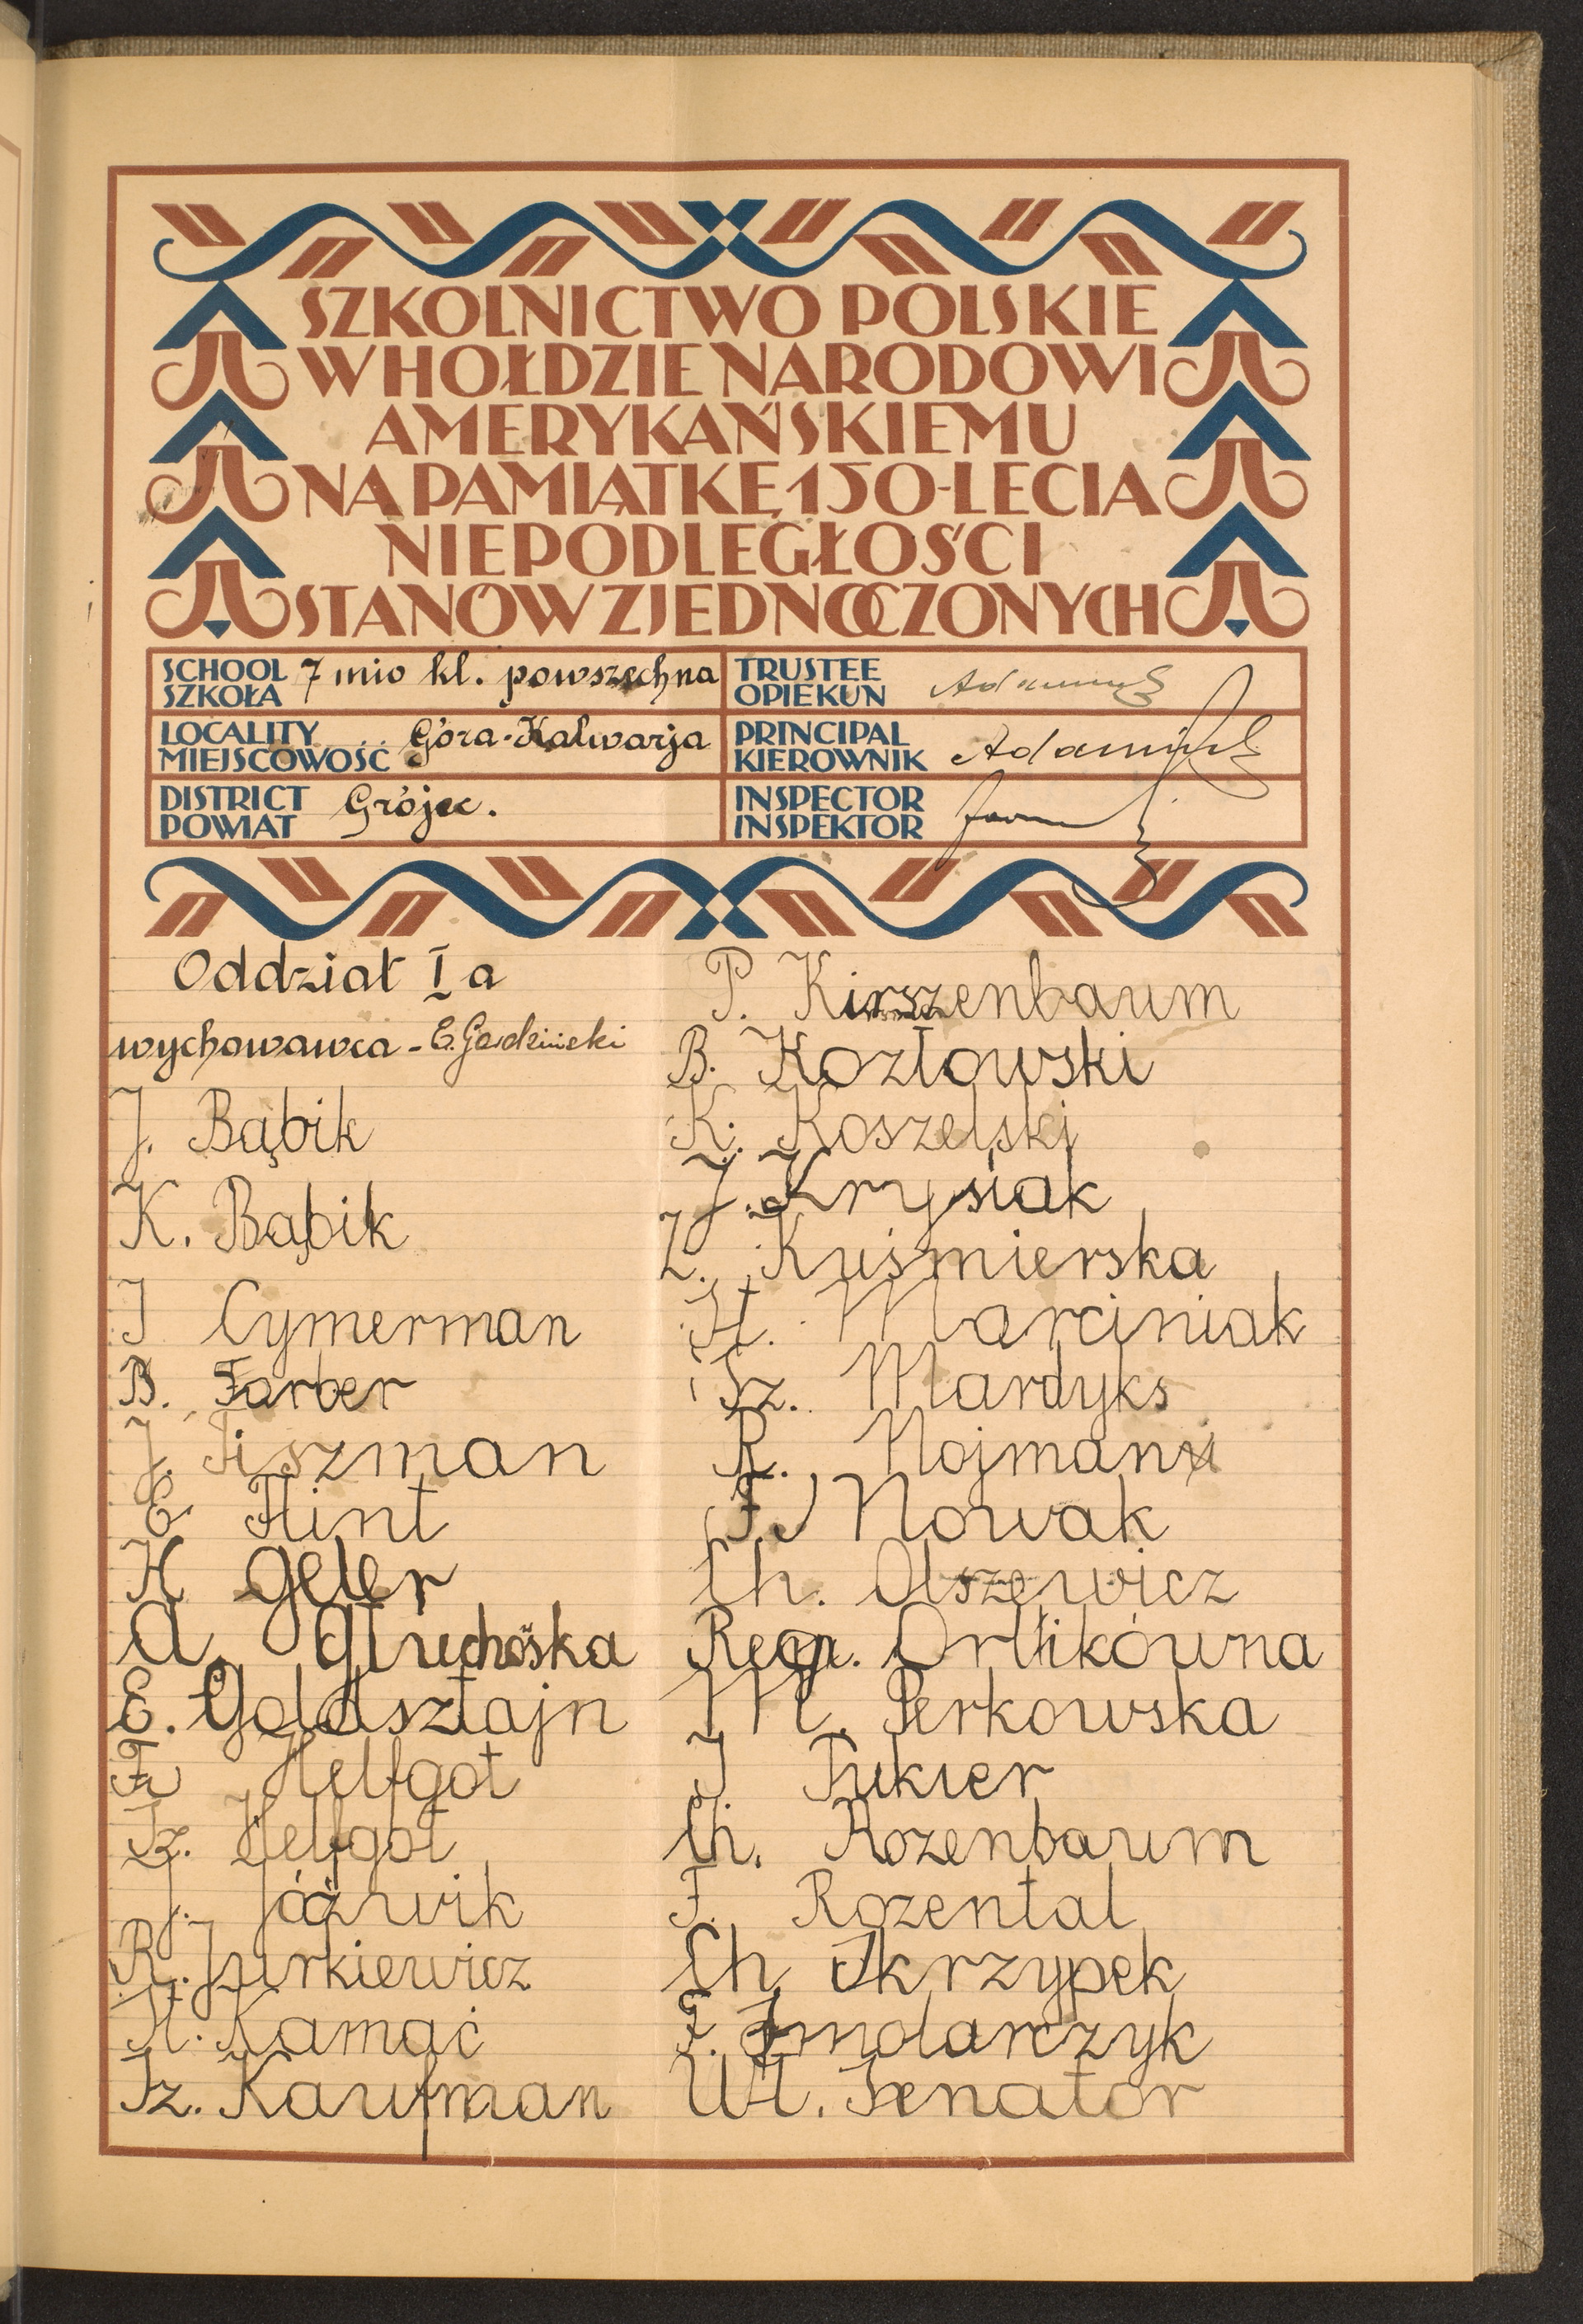 SZKOLNICTWO POLSKIE
W HOŁDZIE NARODOWI
AMERYKAŃSKIEMU
NA PAMIĄTKĘ 150-LECIA
NIEPODLEGŁOŚCI
STANÓW ZJEDNOCZONYCH
SCHOOL
SZKOŁA
7 mio kl. powszechna
TRUSTEE
OPIEKUN
LOCALITY
MIEJSCOWOŚĆ
Góra-Kalwarja
PRINCIPAL
KIEROWNIK
DISTRICT
POWIAT
Grójec.
INSPECTOR
INSPEKTOR
Oddział I a
wychowawca -
J. Bąbik
K. Bąbik
J Cymerman
B. Farber
J. Fiszman
E. Flint
H Geler
A. Głuchowska
E. Goldsztajn
Helfgot
Sz. Helfgot
J. Jóźwik
R. Jurkiewicz
St. Kamać
Sz. Kaufman
P. Kirszenbaum
B. Kozłowski
K. Koszelski
J. Krysiak
Z. Kuśmierska
St. Marciniak
Sz. Mardyks
R. Nojman
F. Nowak
Ch. Olszewicz
Reg. Orlikówna
M. Perkowska
J Pukier
Ch. Rozenbaum
F. Rozental
Ch Skrzypek
F. Smolarczyk
Wł. Senator